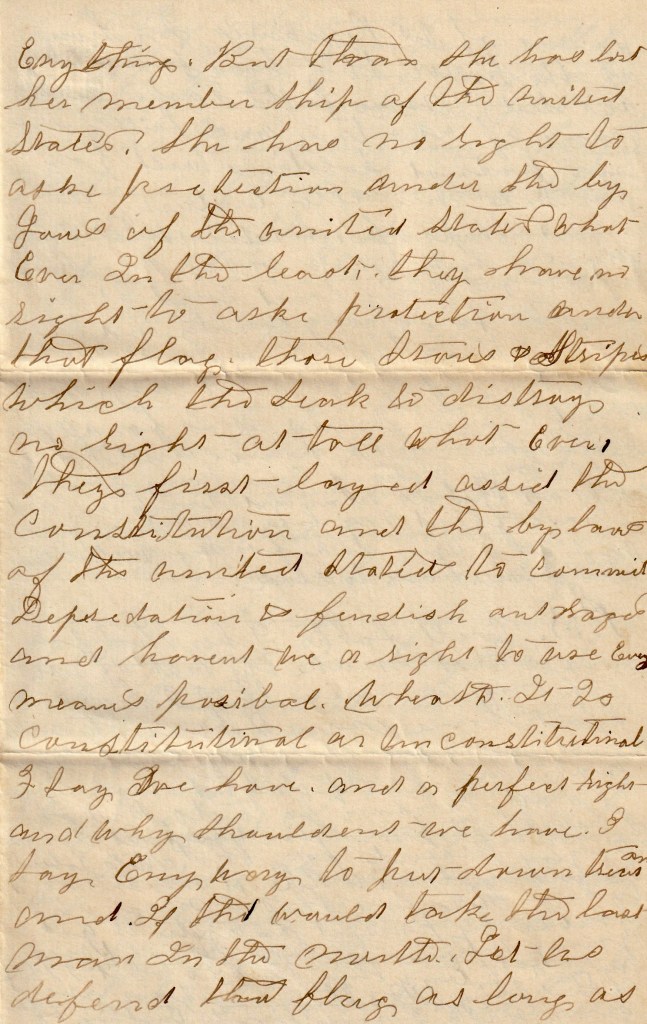 Eny thing. But she has lost
her member ship of the united
States. She has no right to
aske protection under the by
Laws of the united States what
Ever In the least. they have no
right to aske protection under
that flag. those Stars & Stripes
which the seak to distroy
no right at tall what Ever.
they first layed assid the
Constitution and the by laws
of the united States to commit
Depredation & fendish out rages
and havent we a right to use Evry
means posibal. Wheath. It Is
Constitutinal or Unconstitutinal
I say We have. and a perfect right
and why shouldent we have. I
say, Eny way to put down
and If the would take the last
man In the north. Let us
defend that flag as long as